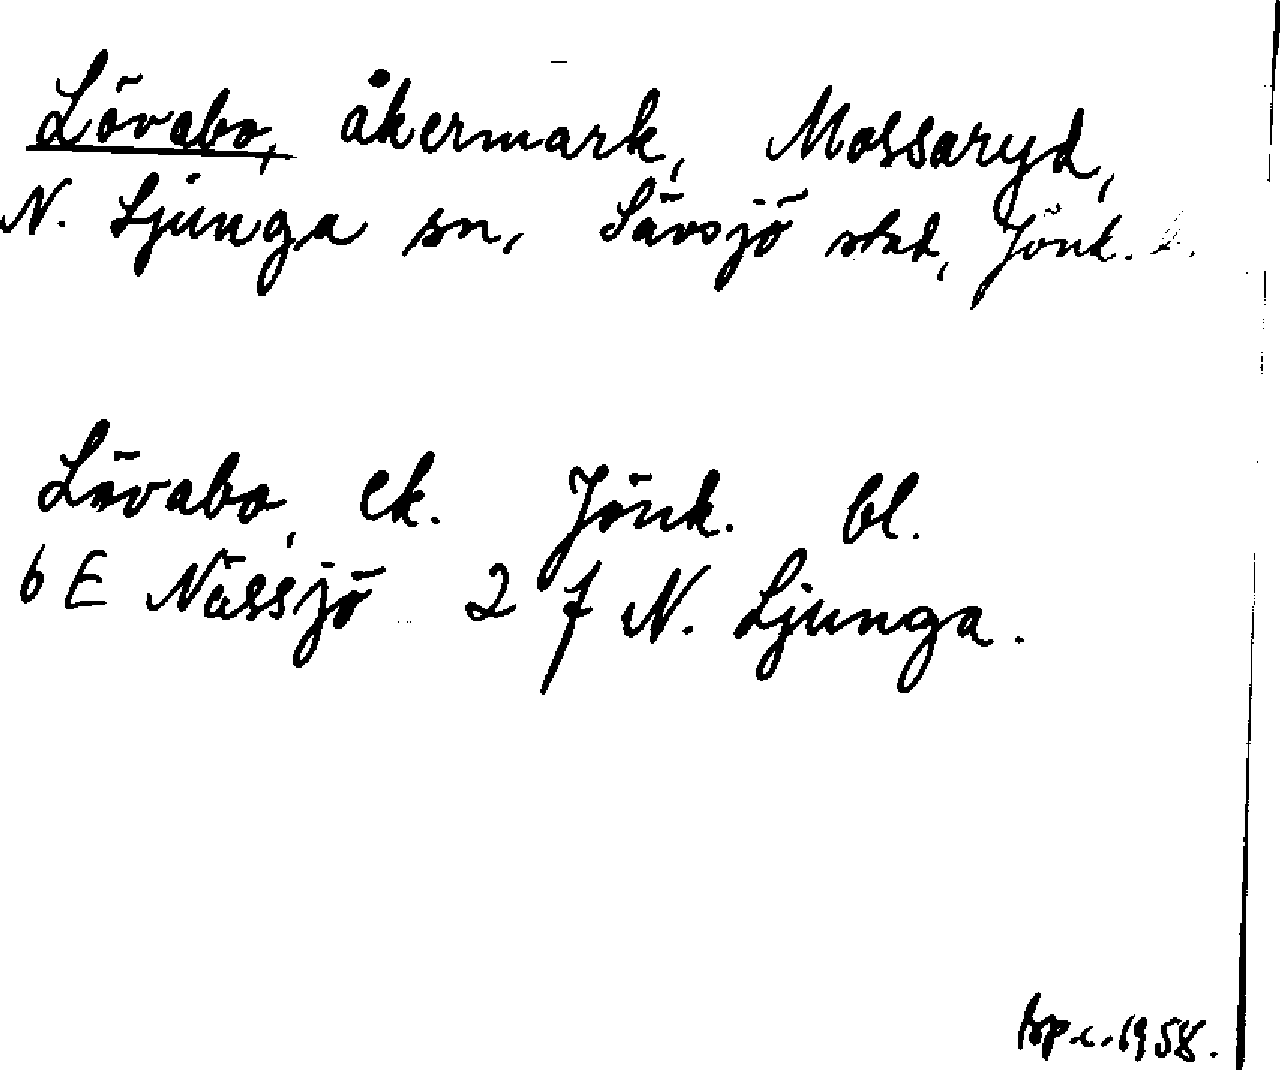 Lövabo, åkermark, Mossaryd,
N. Ljunga sn, Sävsjö stad, Jönk. l.
Lövabo, ek. Jönk. bl.
6 E Nässjö 2 f N. Ljunga.
1958.